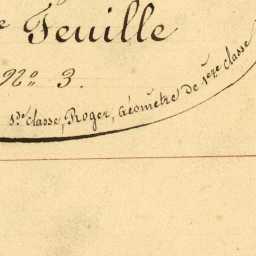 e Feuille
No 3.
s de classe, Roger, Géomètre de 1ere classe